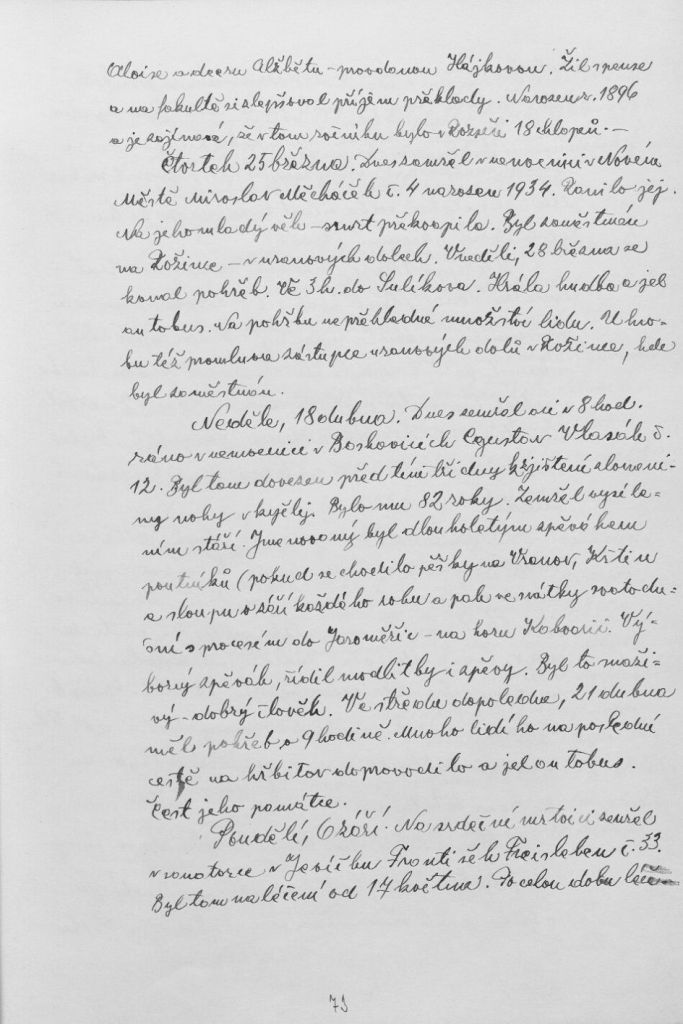 Aloise a dceru Alžbětu - provdanou Hájkovou. Žil z pense
a na fakultě si zlepšoval příjem překlady. Narozen r. 1896
a je zajímavé, že v tom ročníku bylo v Rozseči 18 chlapů. -
Čtvrtek 25 března. Dnes zemřel v nemocnici v Novém
Městě Miroslav Měcháček č. 4 narozen 1934. Ranilo jej.
Na jeho mladý věk - smrt překvapila. Byl zaměstnán
na Rožince - v uranových dolech. V neděli, 28 března se
konal pohřeb. Ve 3 h. do Sulíkova. Hrála hudba a jel
autobus. Na pohřbu nepřehledné množství lidu. U hro-
bu též promluva zástupce uranových dolů v Rožince, kde
byl zaměstnán.
Neděle, 18 dubna. Dnes zemřel asi v 8 hod.
ráno v nemocnici v Boskovicích Egustav Vlasák č.
12. Byl tam dovezen před tím tři dny k zjištění zlomeni-
ny nohy v kyčeli. Bylo mu 82 roky. Zemřel vysíle-
ním stáří. Jmenovaný byl dlouholetým zpěvákem
poutníků (pokud se chodilo pěšky na Vranov, Křtin
a sloupu v září každého roku a pak ve svátky svatodu-
šní s procesím do Jaroměřic - na horu Kalvarii. Vý-
borný zpěvák, řídil modlitby i zpěvy. Byl to snaži-
vý - dobrý člověk. Ve středu dopoledne, 21 dubna
měl pohřeb o 9 hodině. Mnoho lidí ho na poslední
cestě na hřbitov doprovodilo a jel autobus.
Čest jeho památce.
Pondělí, 6 září. Na srdeční mrtvici zemřel
v sanatorce v Jevíčku Frontišek Freisleben č. 33.
Byl tam na léčení od 17 května. Po celou dobu léče-
73